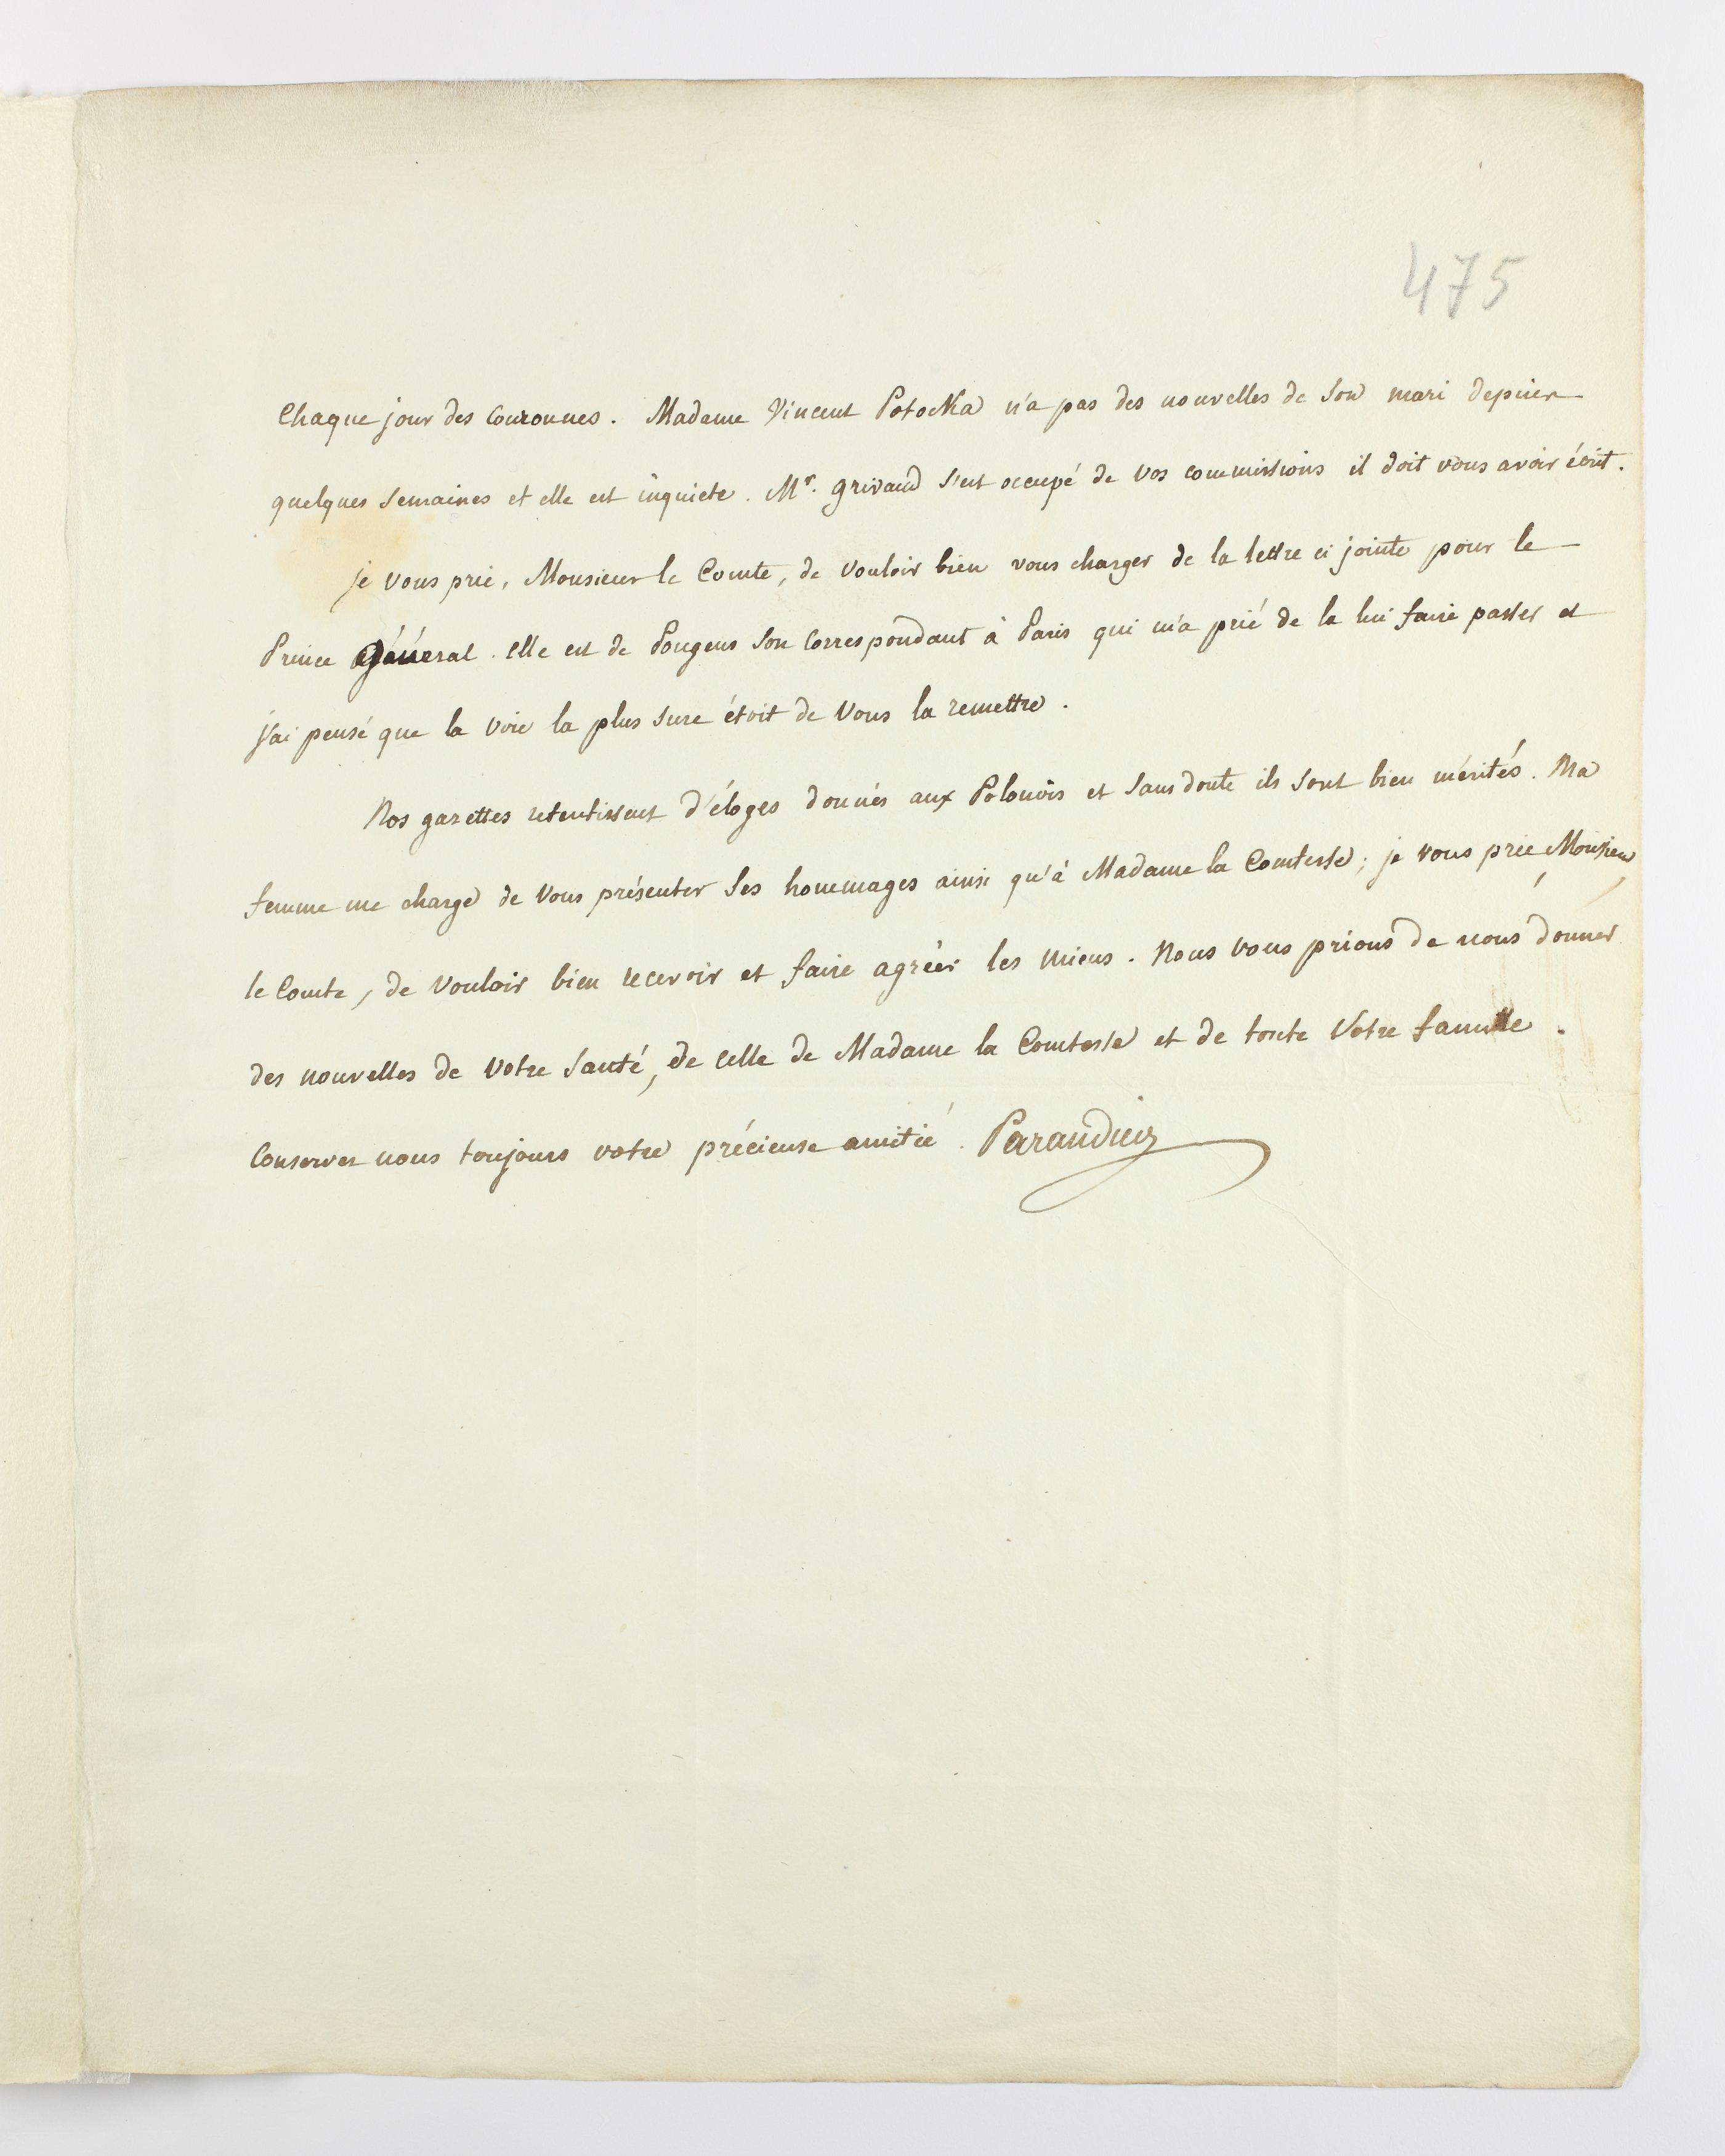 475
Chaque jour des Couronnes. Madame Vincent Potocka n'a pas des nouvelles de son mari depuis
quelques semaines et elle est inquiete. Mr. Grivaud s'est occupé de vos commissions il doit vous avoir écrit.
je vous prie, Monsieur le Comte, de vouloir bien vous charger de la lettre ci jointe pour le
Prince Général. elle est de Pougens son Correspondant à Paris qui m'a prié de la lui faire passer et
j'ai pensé que la voie la plus sure étoit de vous la remettre.
Nos gazettes retentissent d'éloges donnés aux Polonois et sans doute ils sont bien mérités. Ma
femme me charge de vous présenter ses hommages ainsi qu'à Madame la Comtesse; je vous prie, Monsieur
le Comte, de vouloir bien recevoir et faire agréer les miens. Nous vous prions de nous donner
des nouvelles de votre santé, de celle de Madame la Comtesse et de toute votre famille.
Conservez nous toujours votre précieuse amitié. Parandier